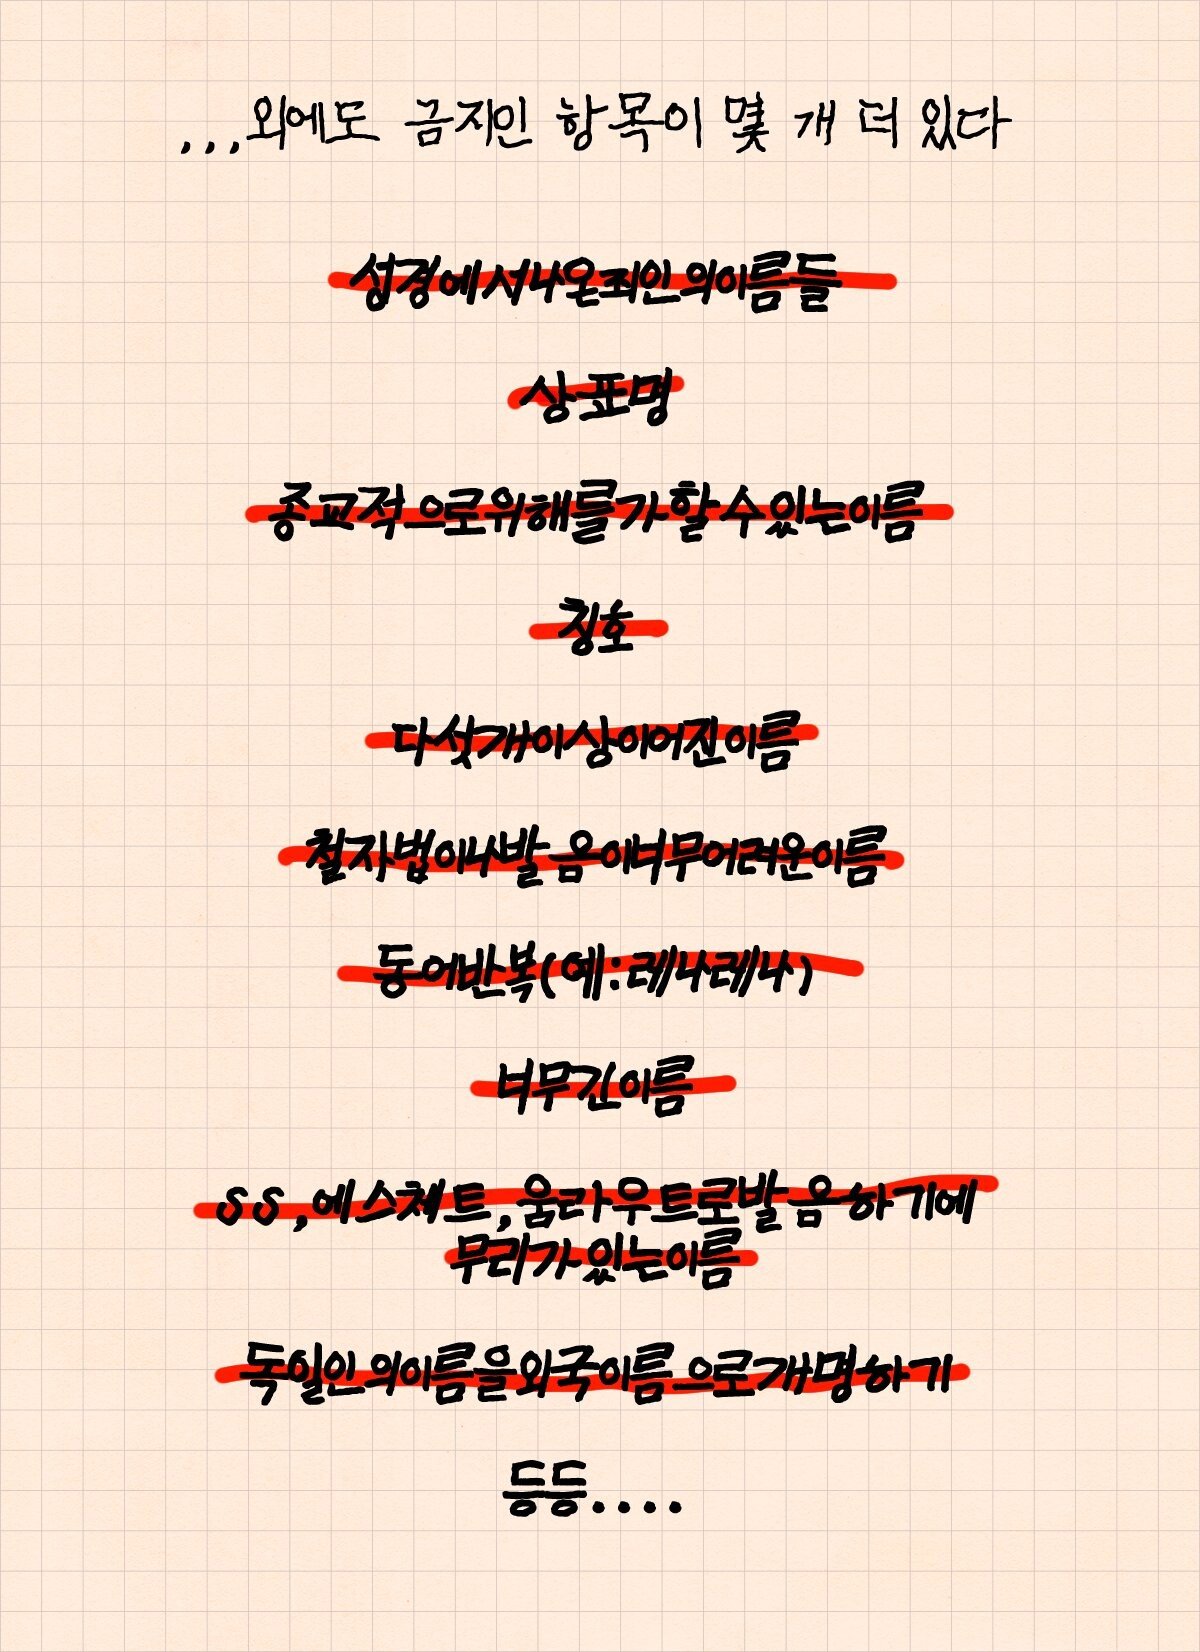 ...외에도 금지인 항목이 몇 개 더 있다
성경에서나온죄인의이름들
상표명
종교적으로위해를가할수있는이름
칭호
다섯개이상이어진이름
철자법이나발음이너무어려운이름
동어반복(예:레나레나)
너무긴이름
SS,에스체트,움라우트로발음하기에
무리가있는이름
독일인의이름을외국이름으로개명하기
등등....